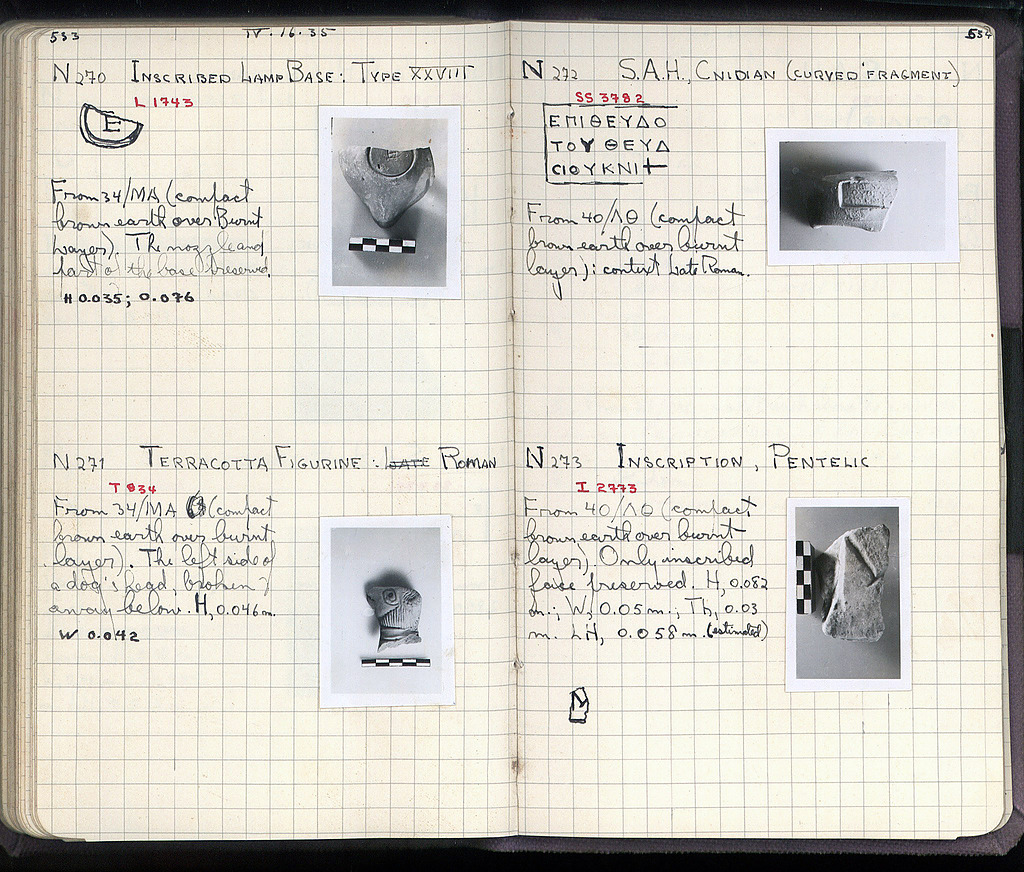 533
IV.16.35
N 270 INSCRIBED LAMP BASE: TYPE XXVIII
L 1743
E
From 34/ΜΑ (compact
brown earth over Burnt
Layer). The nozzle and
part of the base preserved.
H 0.035; 0.076
N 271 TERRACOTTA FIGURINE: LATE ROMAN
T 834
From 34/ΜΑ (compact
brown earth over burnt
layer). The left side of
a dog's head, broken
away below. H, 0.046 m.
W 0.042
534
N 272 S.A.H., CNIDIAN (CURVED FRAGMENT)
SS 3782
ΕΠΙΘΕΥΔΟ
ΤΟΥ ΘΕΥΔ
CΙΟΥΚΝΙ
From 40/ΛΘ (compact
brown earth over burnt
layer): context Late Roman.
N 273 INSCRIPTION, PENTELIC
I 2773
From 40/ΛΘ (compact
brown earth over burnt
layer). Only inscribed
face preserved. H, 0.082
m.; W, 0.05 m.; Th, 0.03
m. LH, 0.058 m. (estimated)